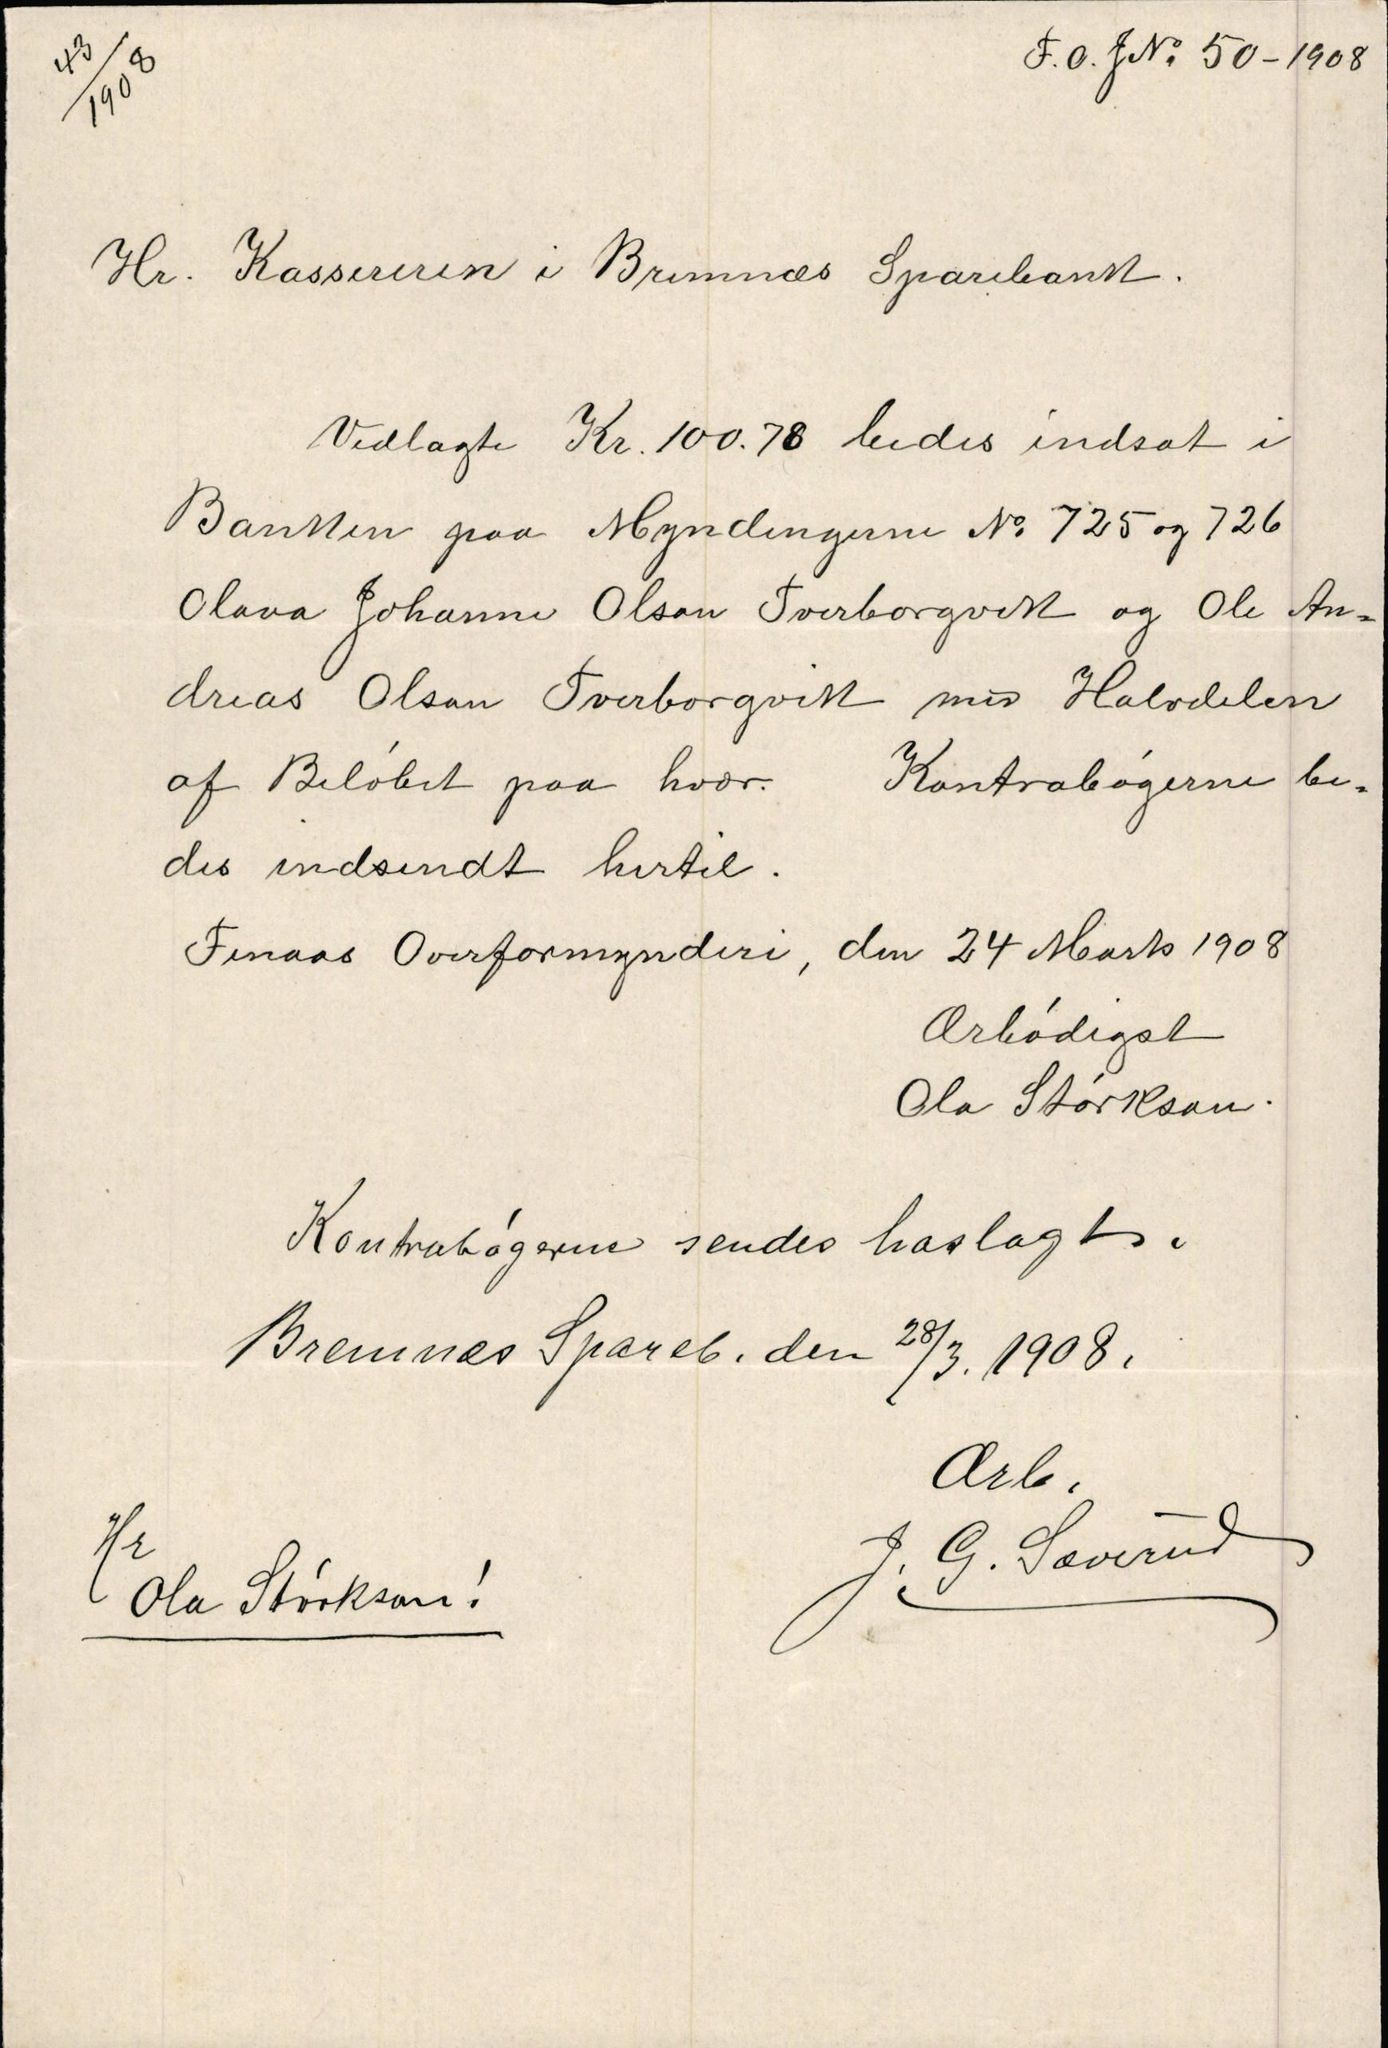 43/1908
F. O. J No. 50 - 1908
Hr. Kassereren i Bremnæs Sparebank.
Vedlagte Kr. 100.78 bedes indsat i
Banken paa Myndlingerne No 725 og 726
Olava Johanne Olson Tverborgvik og Ole An-
dreas Olson Tverborgvik med Halvdelen
af Beløbet paa hver. Kontrabøgerne be-
des indsendt hertil.
Finaas Overformynderi, den 24 Marts 1908
Ærbødigst
Ola Størkson.
Kontrabøgerne sendes haslagt.
Bremnæs Spareb. den 28/3. 1908.
Ærb.
J. G. Sæverud
Hr
Ola Størkson!